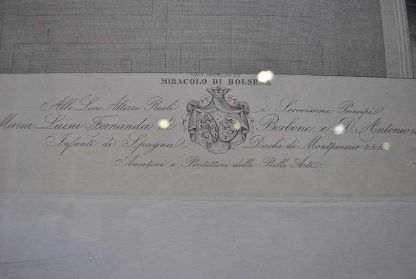 MIRACOLO DI BOLSENA
Alle Loro Altezze Reali i Serenissimi Principi
Maria Luisa Fernanda di Borbone e D. Antonio
Infanti di Spagna Duchi di Montpensier &&&
Amatori e Protettore delle Belle Arti